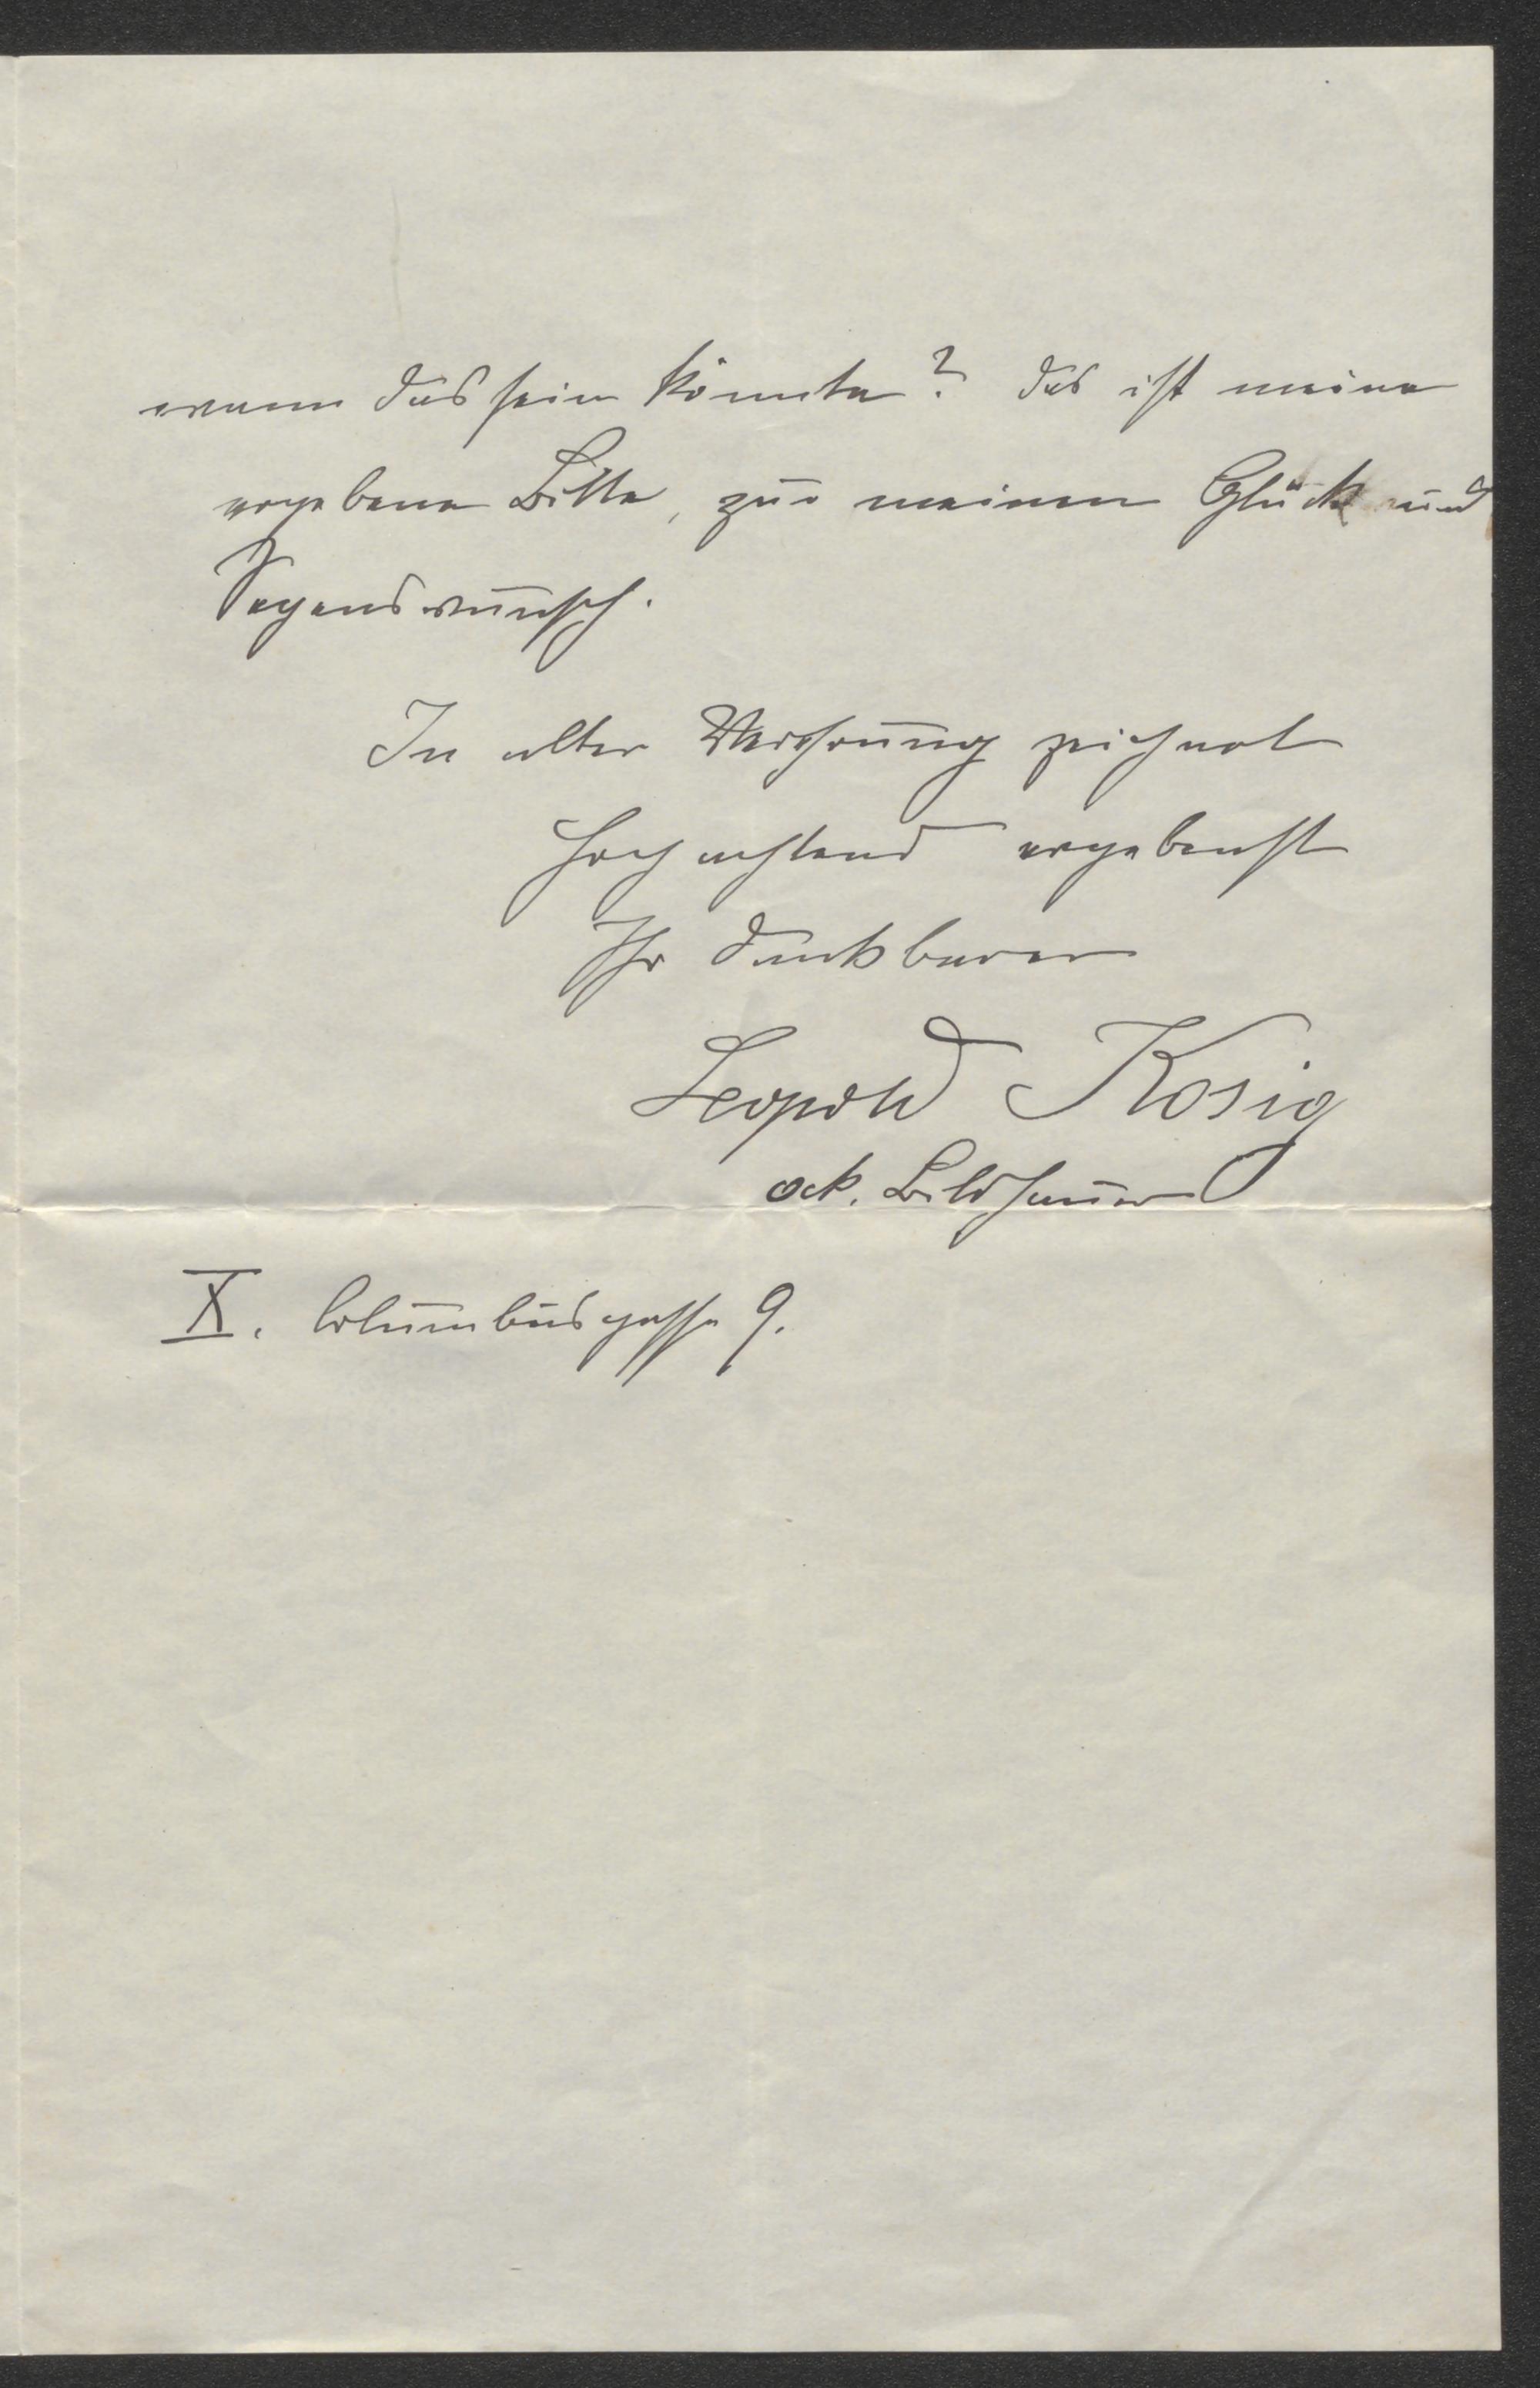 wann das sein könnte? Das ist meine
ergebene Bitte, zu meinem Glück und
Segenswunsch.
In alter Verehrung zeichnet
hochachtend ergebenst
Ihr dankbarer
Leopold Kosig
ak. Bildhauer
X. Columbusgasse 9.